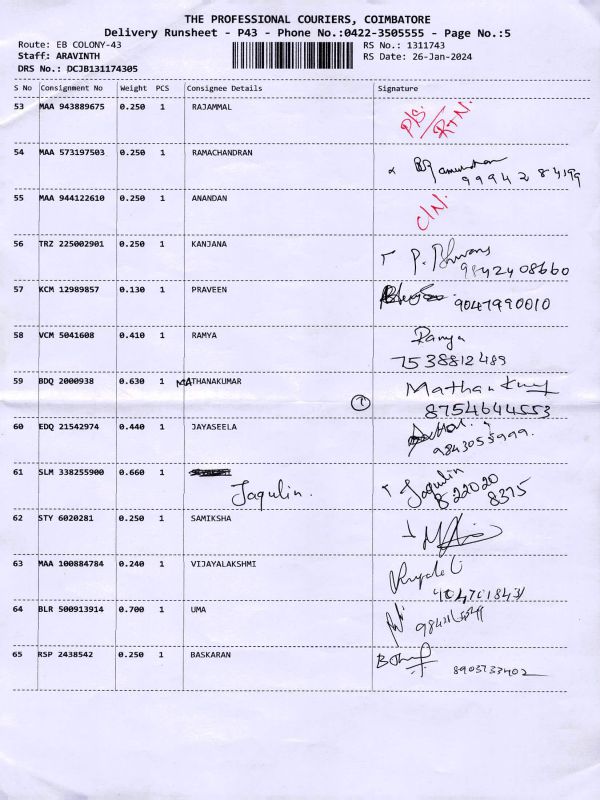 THE PROFESSIONAL COURIERS, COIMBATORE
Delivery Runsheet - P43 - Phone No.:0422-3505555 - Page No.:5
Route: EB COLONY-43 RS No.: 1311743
Staff: ARAVINTH RS Date: 26-Jan-2024
DRS No.: DCJB131174305
S No Consignment No Weight PCS Consignee Details Signature
53 MAA 943889675 0.250 1 RAJAMMAL
P/S/RTN.
54 MAA 573197503 0.250 1 RAMACHANDRAN
55 MAA 944122610 0.250 1 ANANDAN
C/N.
56 TRZ 225002901 0.250 1 KANJANA
9842408660
57 KCM 12989857 0.130 1 PRAVEEN
9047990010
58 VCM 5041608 0.410 1 RAMYA Ramya
7538812489
59 BDQ 2000938 0.630 1 MATHANAKUMAR
8754644553
60 EDQ 21542974 0.440 1 JAYASEELA
9843055999.
61 SLM 338255900 0.660 1
Jaqulin. Jaqulin
822020
8375
62 STY 6020281 0.250 1 SAMIKSHA
63 MAA 100884784 0.240 1 VIJAYALAKSHMI
64 BLR 500913914 0.700 1 UMA
65 RSP 2438542 0.250 1 BASKARAN
8903733402